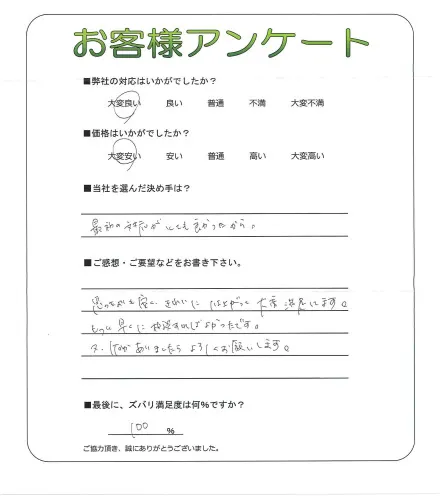 お客様アンケート
■弊社の対応はいかがでしたか？
大変良い 良い 普通 不満 大変不満
■価格はいかがでしたか？
大変安い 安い 普通 高い 大変高い
■当社を選んだ決め手は？
最初の対応がとても良かったから。
■ご感想・ご要望などをお書き下さい。
思ったよりも安く、きれいに仕上がって大変満足してます。
もっと早くに相談すればよかったです。
又、何かありましたらよろしくお願いします。
■最後に、ズバリ満足度は何％ですか？
100 ％
ご協力頂き、誠にありがとうございました。